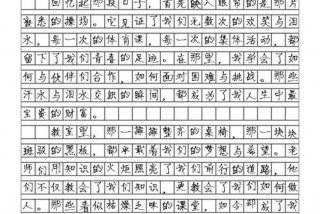 回忆起那段日子，首先映入眼帘的是那片
熟悉的操场。它见证了我们无数次的欢笑与泪
水，每一次的体育课，每一次的集体活动，都
留下了我们青春的足迹。在那里，我学会了如
何与伙伴们合作，如何面对困难与挑战。那些
汗水与泪水交织的瞬间，都成为了我人生中最
宝贵的财富。
教室里，那一排排整齐的桌椅，那一块块
斑驳的黑板，都承载着我们的梦想与希望。老
师们用知识的火炬照亮了我们前行的道路，他
们不仅教会了我们知识，更教会了我们如何做
人。那些看似枯燥乏味的课堂，如今却成了我